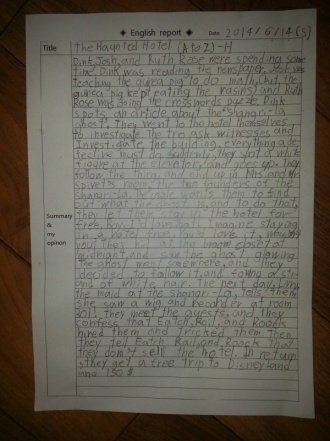 ◆ English report ◆
Date : 2014/6/14(s)
Title
the Haunted Hotel (A to Z)-H
Dink, Josh, and Ruth Rose were spending some
time. Dink was reading the newspaper, Josh was
teaching the guinea pig to do math (but, the
guinea pig kept eating the rasins) and Ruth
Rose was doing the crosswords puzzle. Dink
spots an article about the shangri-la
ghost. They went to the hotel themselves
to investigate. The trio ask witnesses and
investigate the building, everything a de-
tective must do. suddenly, they spot a white
figure at the elevator and goes up. They
follow the thing, and end up in Mrs and Mr
Spivets room, the two founders of the
shangri-la. The couple wants them to find
out what the ghost is, and to do that,
they let them stay in the hotel for
free. Boy, I'd love that! Imagine staying
in a hotel free, you'd love it, wouldn't
you! They hid at the broom closet at
midnight, and saw the ghost glowing.
The ghost went somewhere, and they
decided to follow it, and found a str-
and of white hair. The next day,
the maid at the shangri-La, tells them
she saw a wig and recorder at room
301! they meet the guests, and they
confess that Eatch, Rail, and Roock
hired them and tricked them. Then
they tell Eatch, Rail, and Roock that
they don't sell the hotel. In return,
they get a free trip to Disneyland
and 150 $
Summary
&
my
opinon